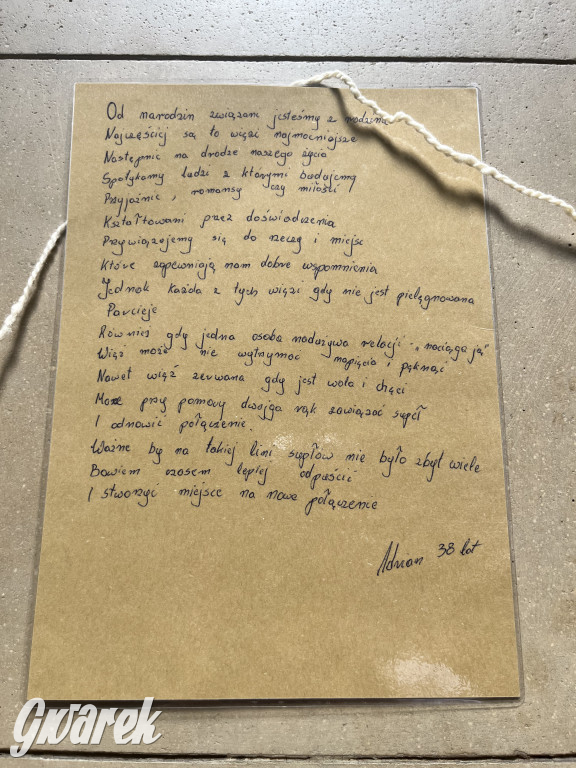 Od narodzin związani jesteśmy z rodziną
Najczęściej są to więzi najmocniejsze
Następnie na drodze naszego życia
Spotykamy ludzi z którymi budujemy
Przyjaźnie, romansy czy miłości
Kształtowani przez doświadczenia
Przywiązujemy się do rzeczy i miejsc
Które zapewniają nam dobre wspomnienia
Jednak każda z tych więzi gdy nie jest pielęgnowana
Parcieje
Również gdy jedna osoba nadużywa relacji "naciąga ją"
Więź może nie wytrzymać napięcia i pęknąć
Nawet więź zerwana gdy jest wola i chęci
Może przy pomocy dwojga rąk zawiązać supeł
I odnowić połączenie
Ważne by na takiej lini supłów nie było zbyt wiele
Bowiem czasem lepiej odpuścić
I stworzyć miejsce na nowe połączenie
Adrian 38 lat
Gwarek